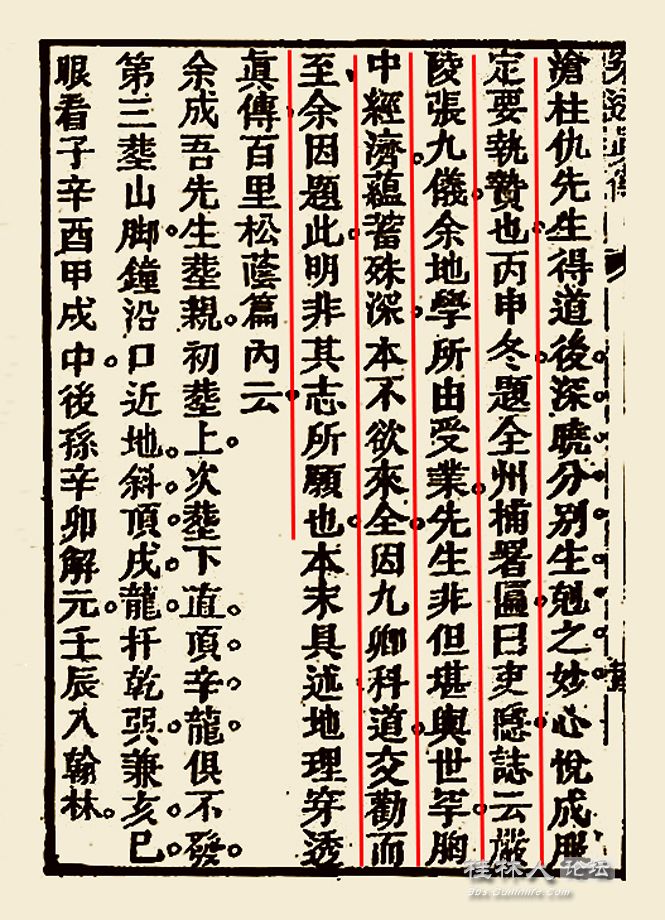 滄柱仇先生得道後深曉分別生剋之妙心悅成服
定要執贄也丙申冬題全州捕署匾曰吏隱誌云
陵張九儀余地學所由受業先生非但堪輿世罕胸
中經濟蘊蓄殊深本不欲來全因九卿科道交勸而
至余因題此明非其志所願也本末具述地理穿透
眞傳百里松蔭篇內云
余成吾先生塟親初塟上次塟下直頂辛龍俱不發
第三塟山脚鐘沿口近地斜頂戌龍扦乾巽兼亥巳
眼看子辛酉甲戌中後孫辛卯解元壬辰入翰林
桂林人论坛